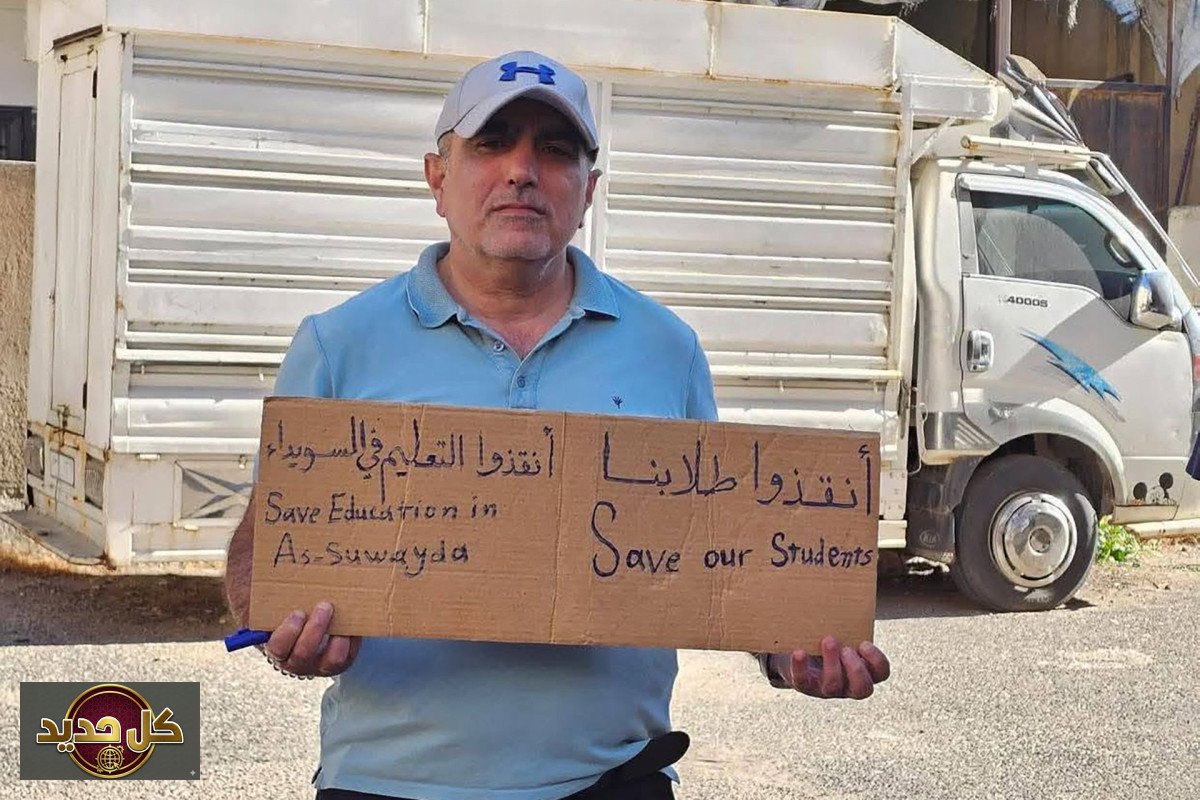 أنقذوا طلابنا
Save our Students
أنقذوا التعليم في السويداء
Save Education in
As-Suwayda
4000S
KIA
كل جديد